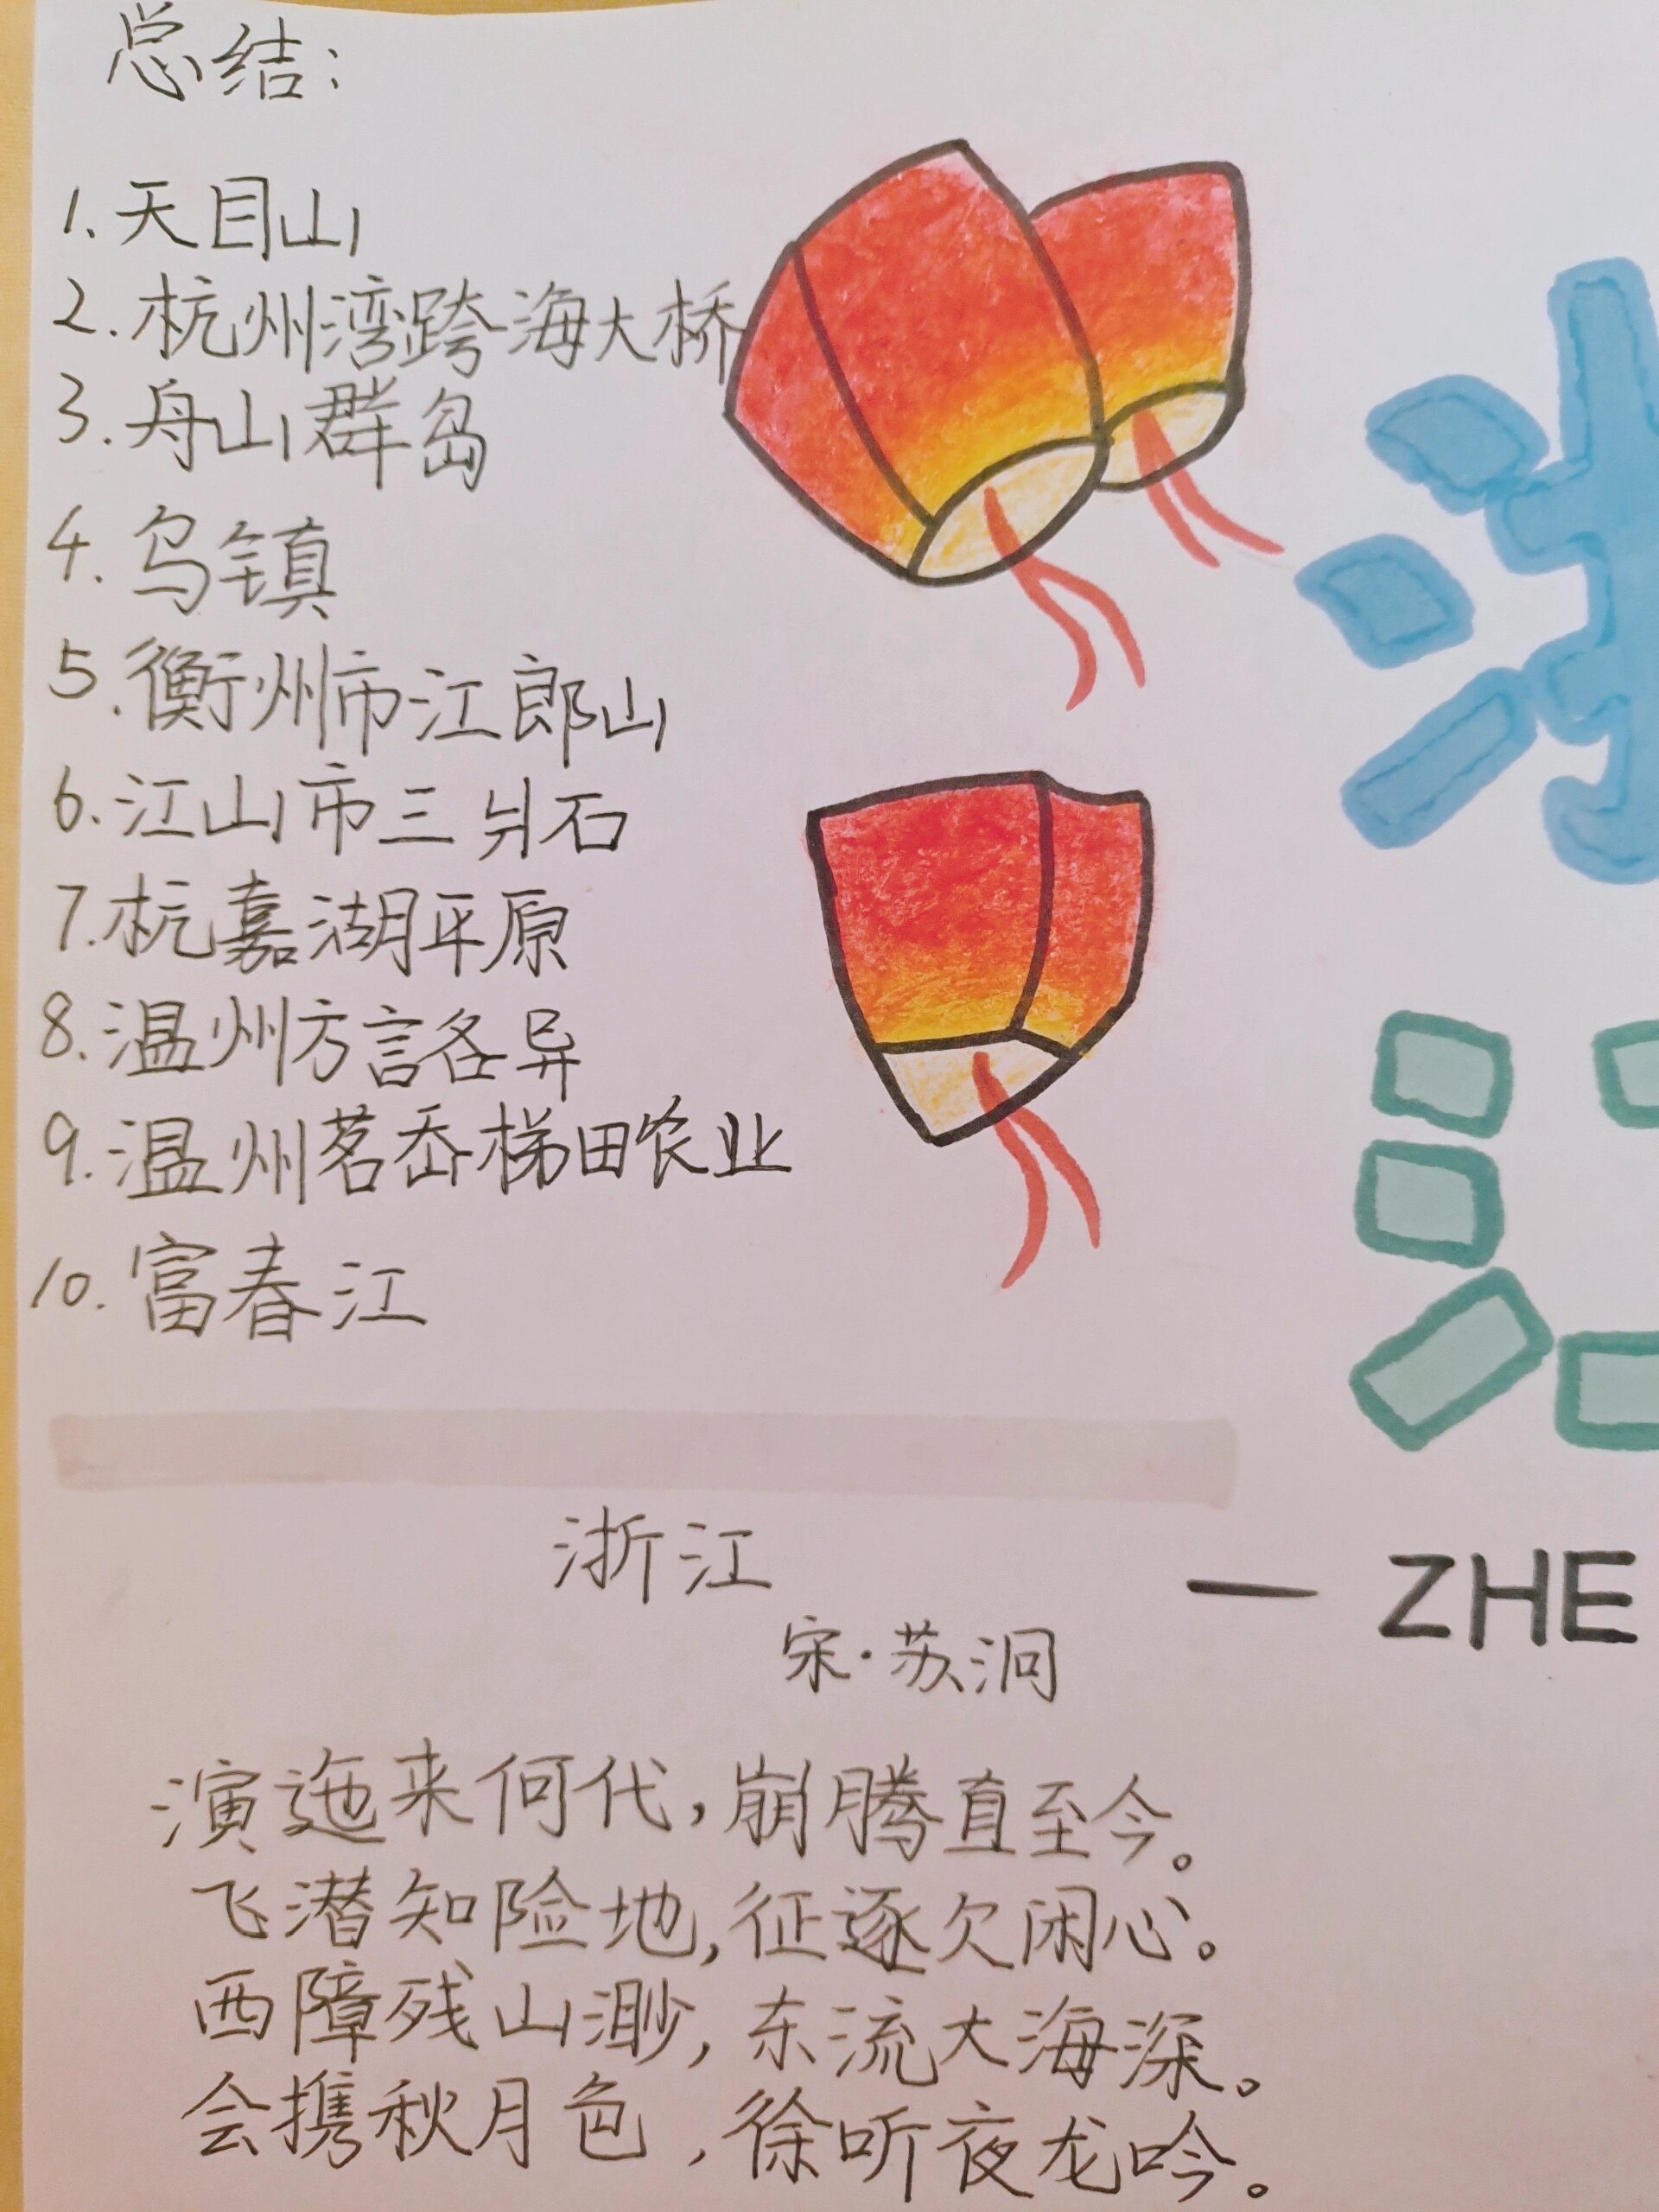 总结:
1. 天目山
2. 杭州湾跨海大桥
3. 舟山群岛
4. 乌镇
5. 衡州市江郎山
6. 江山市三爿石
7. 杭嘉湖平原
8. 温州方言各异
9. 温州茗岙梯田农业
10. 富春江
浙江
宋·苏泂
演迤来何代，崩腾直至今。
飞潜知险地，征逐欠闲心。
西障残山渺，东流大海深。
会携秋月色，徐听夜龙吟。
— ZHE